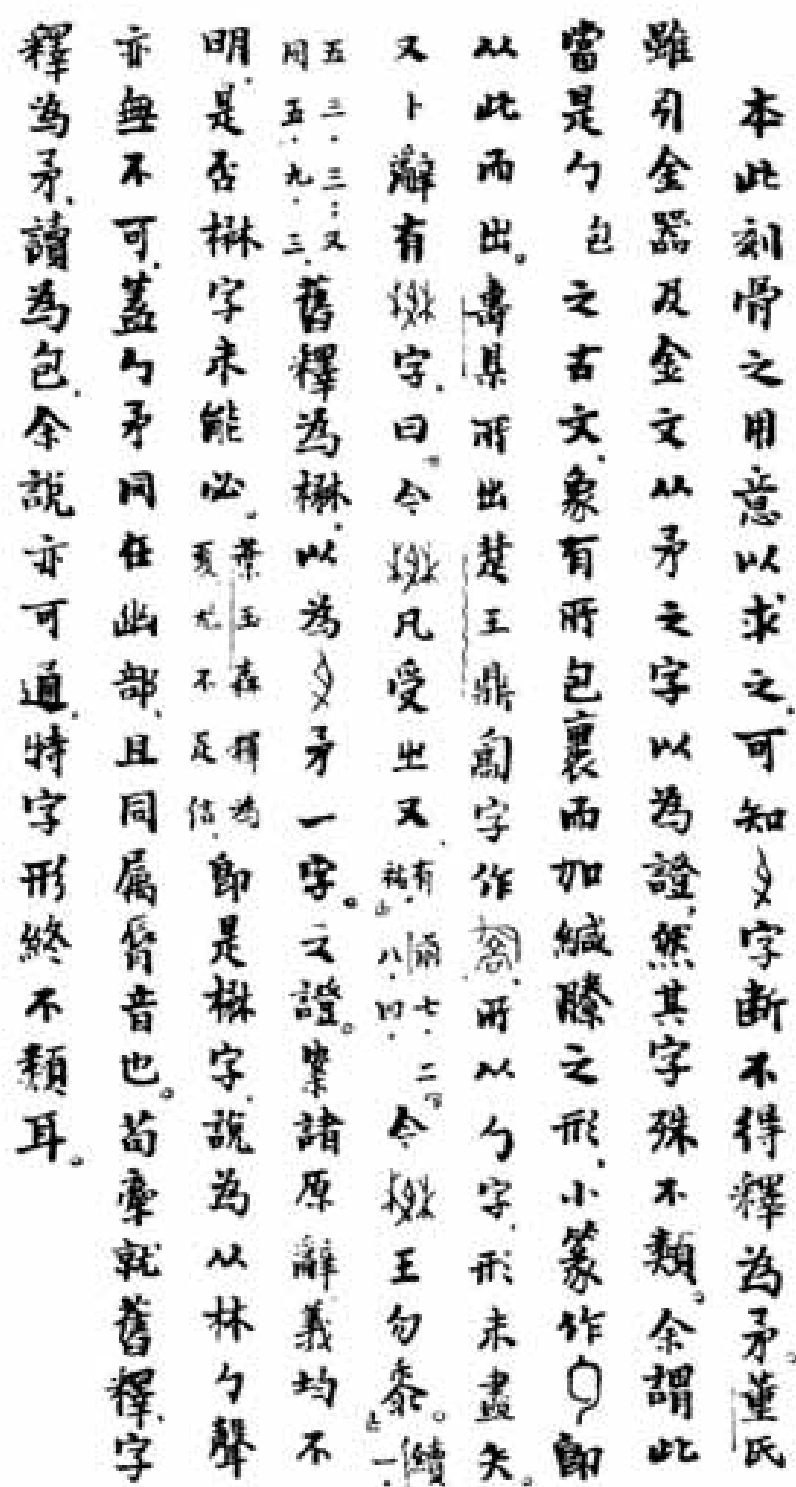 本此刻骨之用意以求之，可知字斷不得釋為矛。董氏
雖引金器及金文从矛之字以為證，然其字殊不類。余謂此
當是勹包之古文，象有所包裹而加緘縢之形，小篆作即
从此而出。壽县所出楚王鼎匋字作，所以勹字，形未盡失。
又卜辭有字，曰。令凡受㞢又，有祐 前七・二八・四・令王勿黍。續一・
五三・三；又同五・九・三 舊釋為楙，以為矛一字之證。案諸原辭義均不
明，是否楙字未能必。葉玉森釋為夏尤不足信，即是楙字，說為从林勹聲
亦無不可，蓋勹矛同在幽部，且同属脣音也。苟牽就舊釋，字
釋為矛，讀為包，余說亦可通，特字形終不類耳。